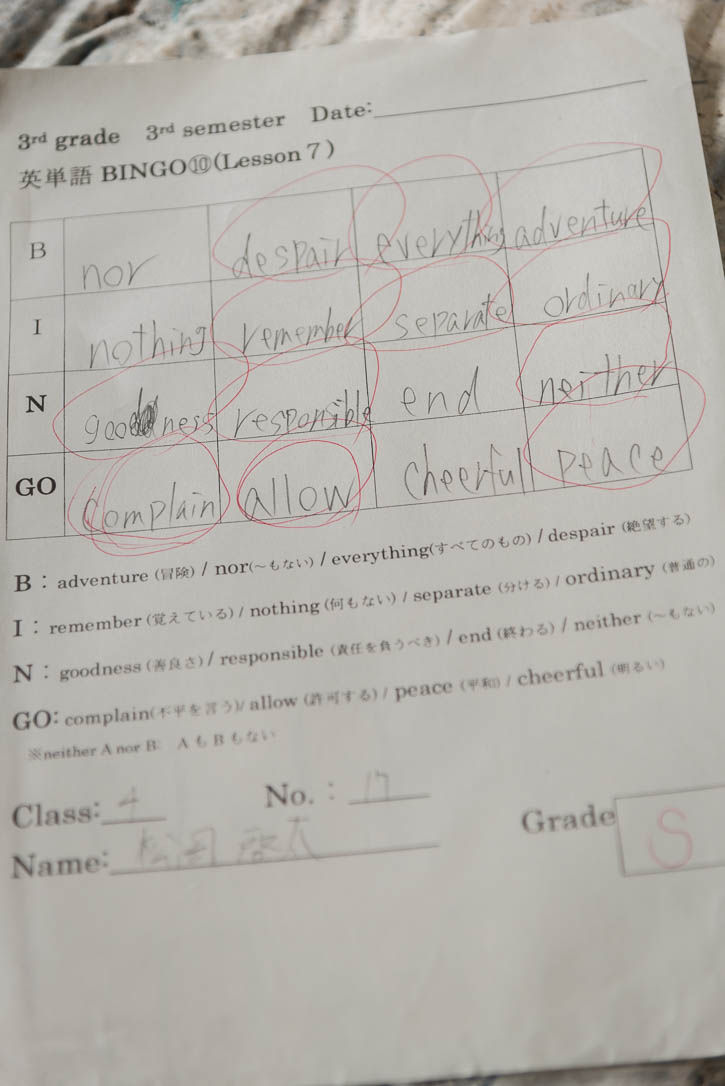 3rd grade 3rd semester Date:
英単語 BINGO⑩(Lesson 7)
B nor despair everything adventure
I nothing remember separate ordinary
N goodness responsible end neither
GO complain allow cheerfull peace
B：adventure (冒険) / nor(～もない) / everything(すべてのもの) / despair (絶望する)
I：remember (覚えている) / nothing (何もない) / separate (分ける) / ordinary (普通の)
N：goodness (善良さ) / responsible (責任を負うべき) / end (終わる) / neither (～もない)
GO: complain(不平を言う)/ allow (許可する) / peace (平和) / cheerful (明るい)
※neither A nor B: A も B もない
Class: 4 No.：17
Grade S
Name: 松